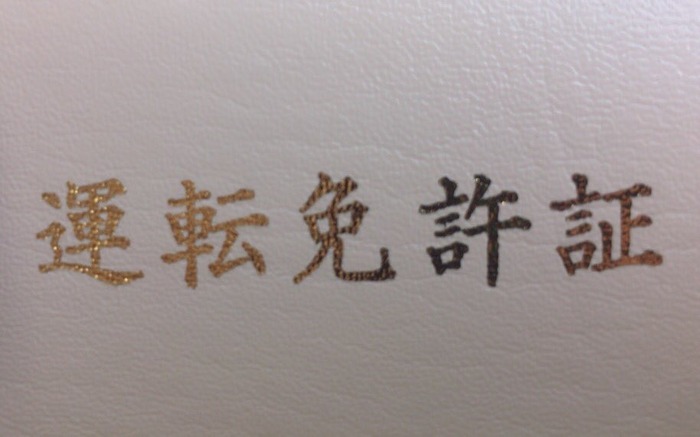 運転免許証